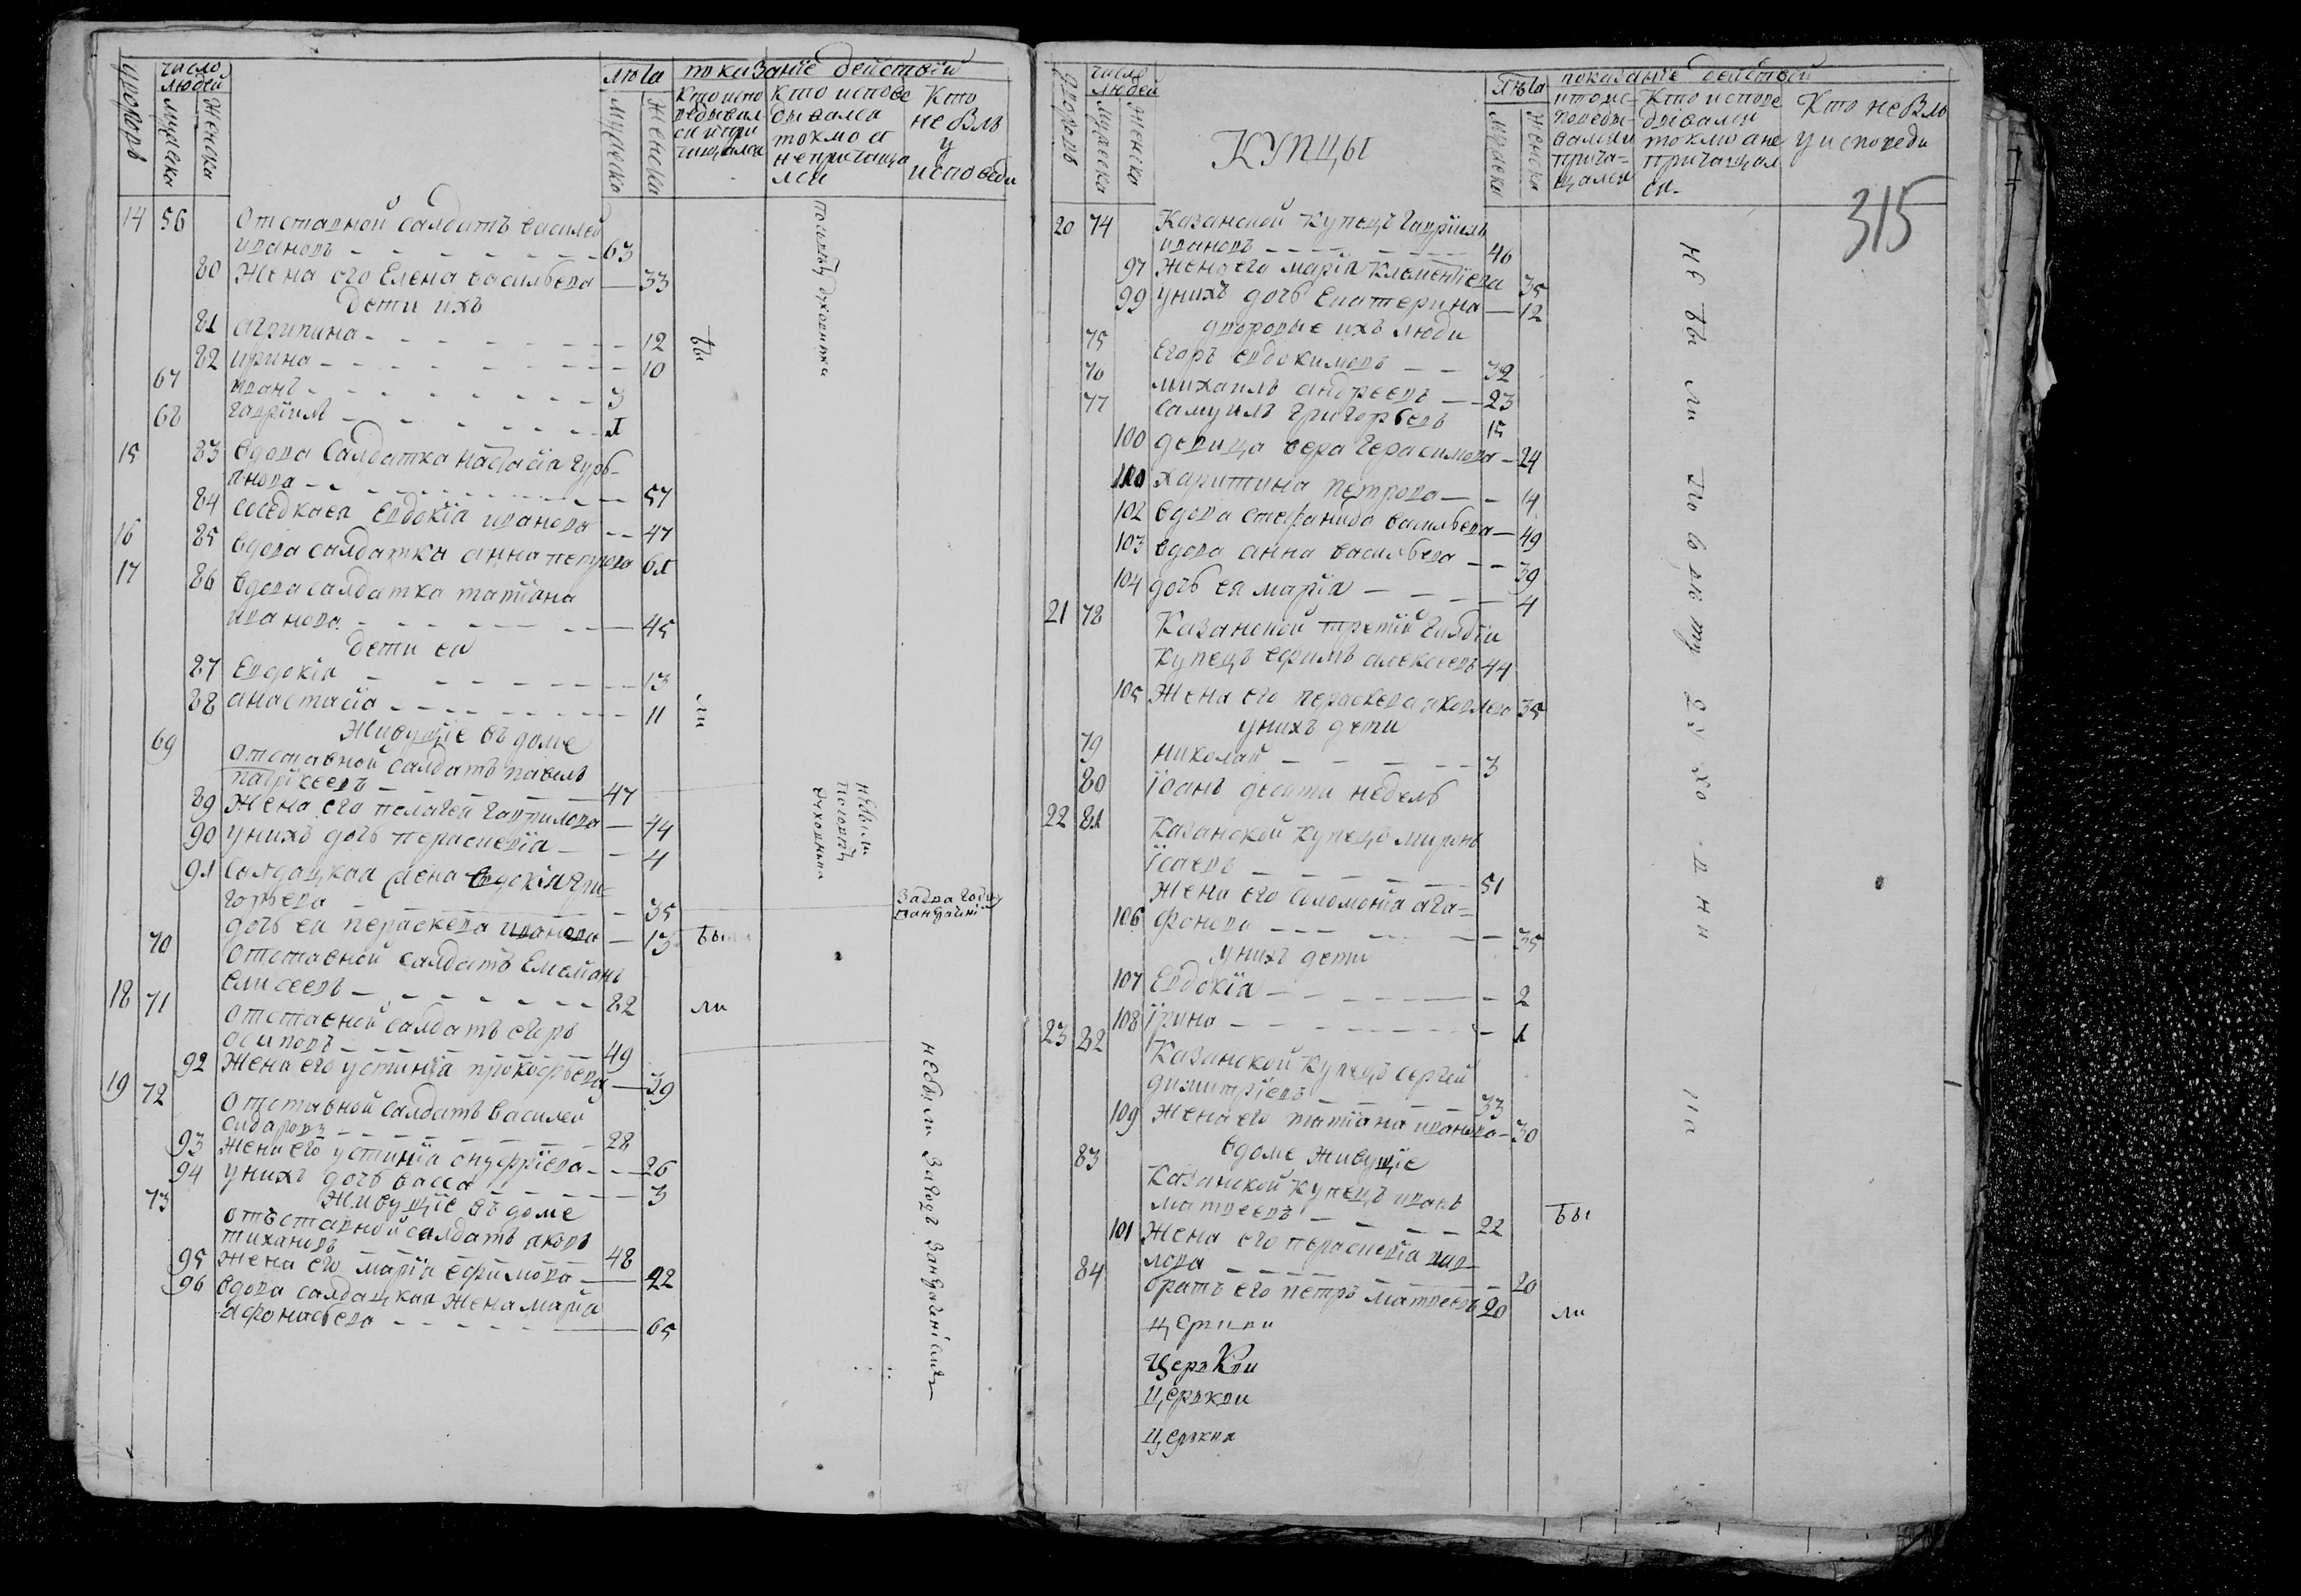 дворовъ
число
людей
мужеска
Женска
лѣта
мужеска
Женска
показанїе действїй
Кто испо
ведывал
ся и при
чащался
Кто испове
дывался
токмо а
непричаща
лся
Кто
не былъ
у
исповѣди
14 56 Отставной салдатъ василей
ивановъ 63
80 Жена его Елена васильева 33
дети ихъ
81 агрипина 12
82 ирина 10
67 иванъ 3
68 гаврїилъ 1
15 83 вдова Салдатка настасїа гурь-
янова 57
84 соседка ея Евдокїа иванова 47
16 85 вдова салдатка анна петрова 61
17 86 вдова салдатка татїана
иванова 45
дети ея
87 Евдокїа 13
88 анастасїа 11
Живущїе въ доме
69 Отставной салдатъ павелъ
патрїкеевъ 47
89 Жена его пелагея гаврилова 44
90 у нихъ дочь параскевїа 4
91 Салдацкая жена Евдокїя Гри-
горьева 35
дочь ея параскева иванова 13
70 Отставной салдатъ Емельянъ
елисеевъ 82
18 71 отставной салдатъ егоръ
осиповъ 49
92 Жена его устинїа прокофьева 39
19 72 Отставной салдатъ василей
сидаровъ 28
93 жена его устинїа онуфрїева 26
94 у нихъ дочь васса 3
Живущїе въ доме
73 отъставной салдатъ яковъ
тихановъ 48
95 жена его марїа ефимова 22
96 вдова салдацкая Жена марїа
афонасьева 65
бы
ли
бы
ли
по
духовники
небыли
духовники
небыли
дворовъ
число
людей
мужеска
Женско
КУПЦЫ
лѣта
мужеска
Женска
показанїе действїй
кто ис-
поведы-
вался и
прича-
щался
Кто испове
дывался
токмо а не
причащал
ся
Кто не былъ
у исповеди
315
20 74 Казанской купецъ гаврїилъ
ивановъ 46
97 жена его марїа Клементїева 35
99 у нихъ дочь Екатерина 12
дворовые ихъ люди
75 Егоръ евдокимовъ 32
76 михаилъ андреевъ 23
77 самуилъ григорьевъ 15
100 девица вера герасимова 24
харитина петрова 14
102 вдова стефанида васильева 49
103 вдова анна васильева 39
104 дочь ея марїа 4
21 78 Казанской третїй гилдїи
купецъ ефимъ алексеевъ 44
105 Жена его параскева яковлева 35
у нихъ дети
79 николай 3
80 їоанъ десяти недель
22 81 Казанской купецъ миронъ
їсаевъ 51
Жена его соломонїа ага-
106 фонова 35
у нихъ дети
107 Евдокїа 2
108 їрина 1
23 82 Казанской купецъ сергей
димитрїевъ 33
109 Жена его татїана иванова 30
в доме живущїе
83 Казанской купецъ иванъ
матвеевъ 22
101 Жена его параскевїа пав-
лова 20
84 братъ его петръ матвеевъ 20
церкви
Церькви
церькви
церькви
не бы ли
бы
ли